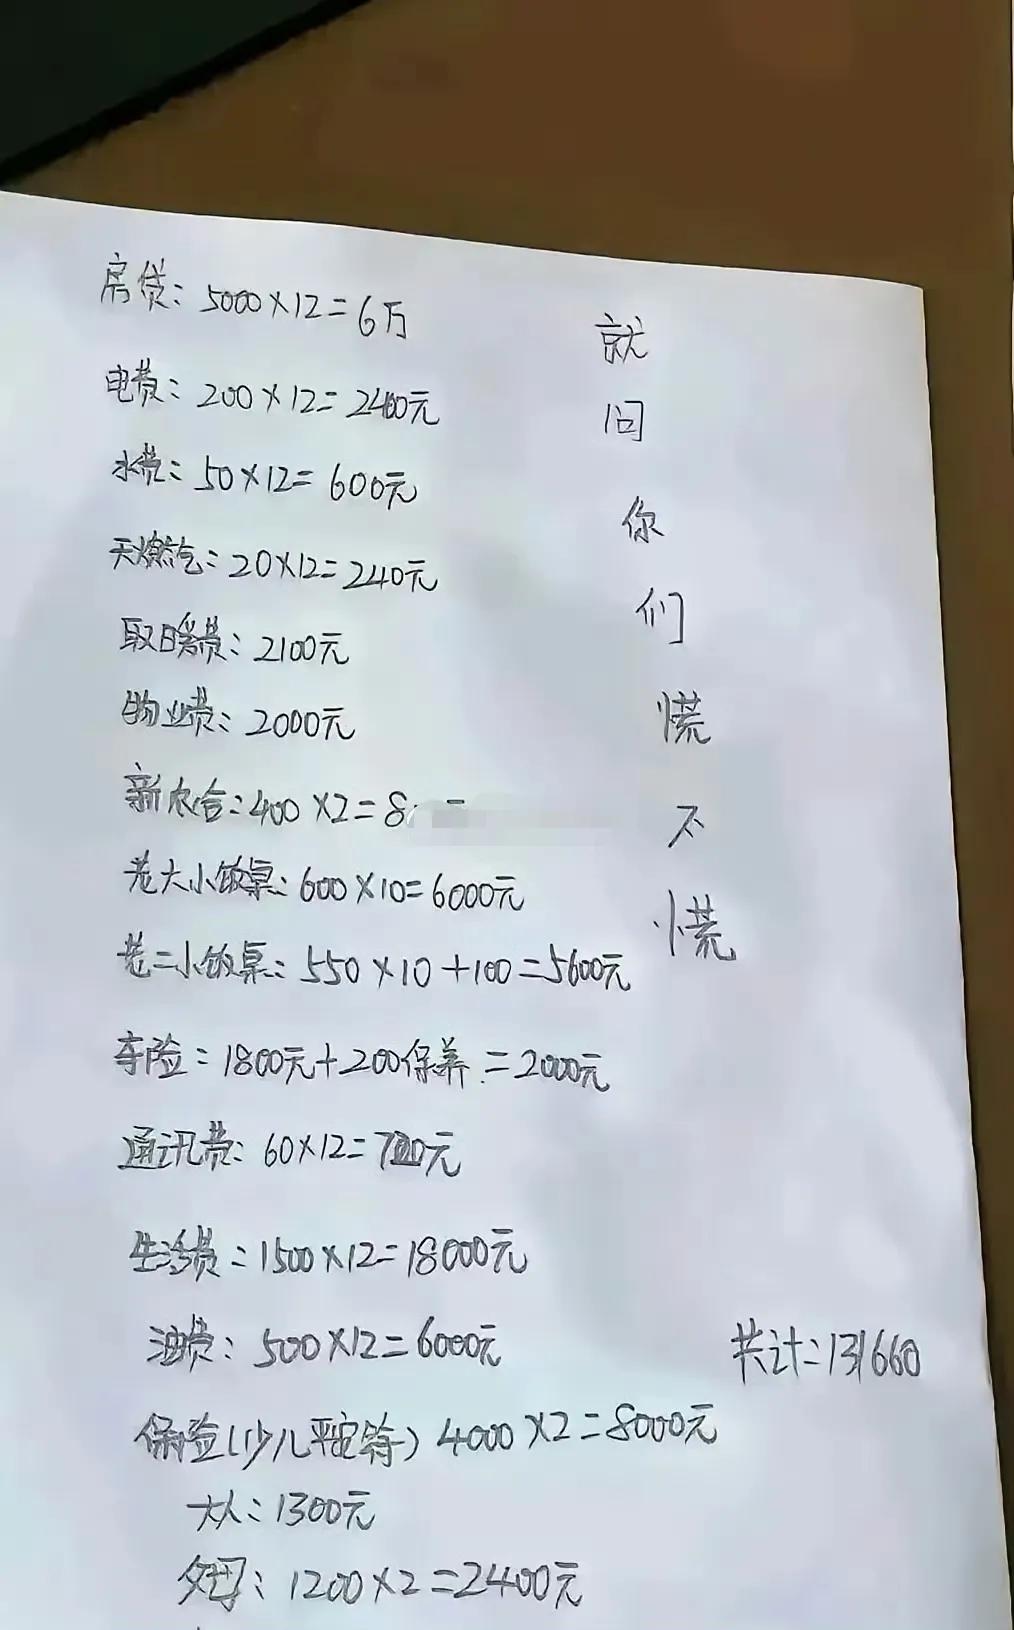 房贷：5000×12=6万
电费：200×12=2400元
水费：50×12=600元
天燃气：20×12=240元
取暖费：2100元
物业费：2000元
新农合：400×2=8
老大小饭桌：600×10=6000元
老二小饭桌：550×10+100=5600元
车险：1800元+200保养=2000元
通讯费：60×12=720元
生活费：1500×12=18000元
油费：500×12=6000元
保险(少儿平安符) 4000×2=8000元
大人：1300元
父母：1200×2=2400元
就问你们慌不慌
共计：131660